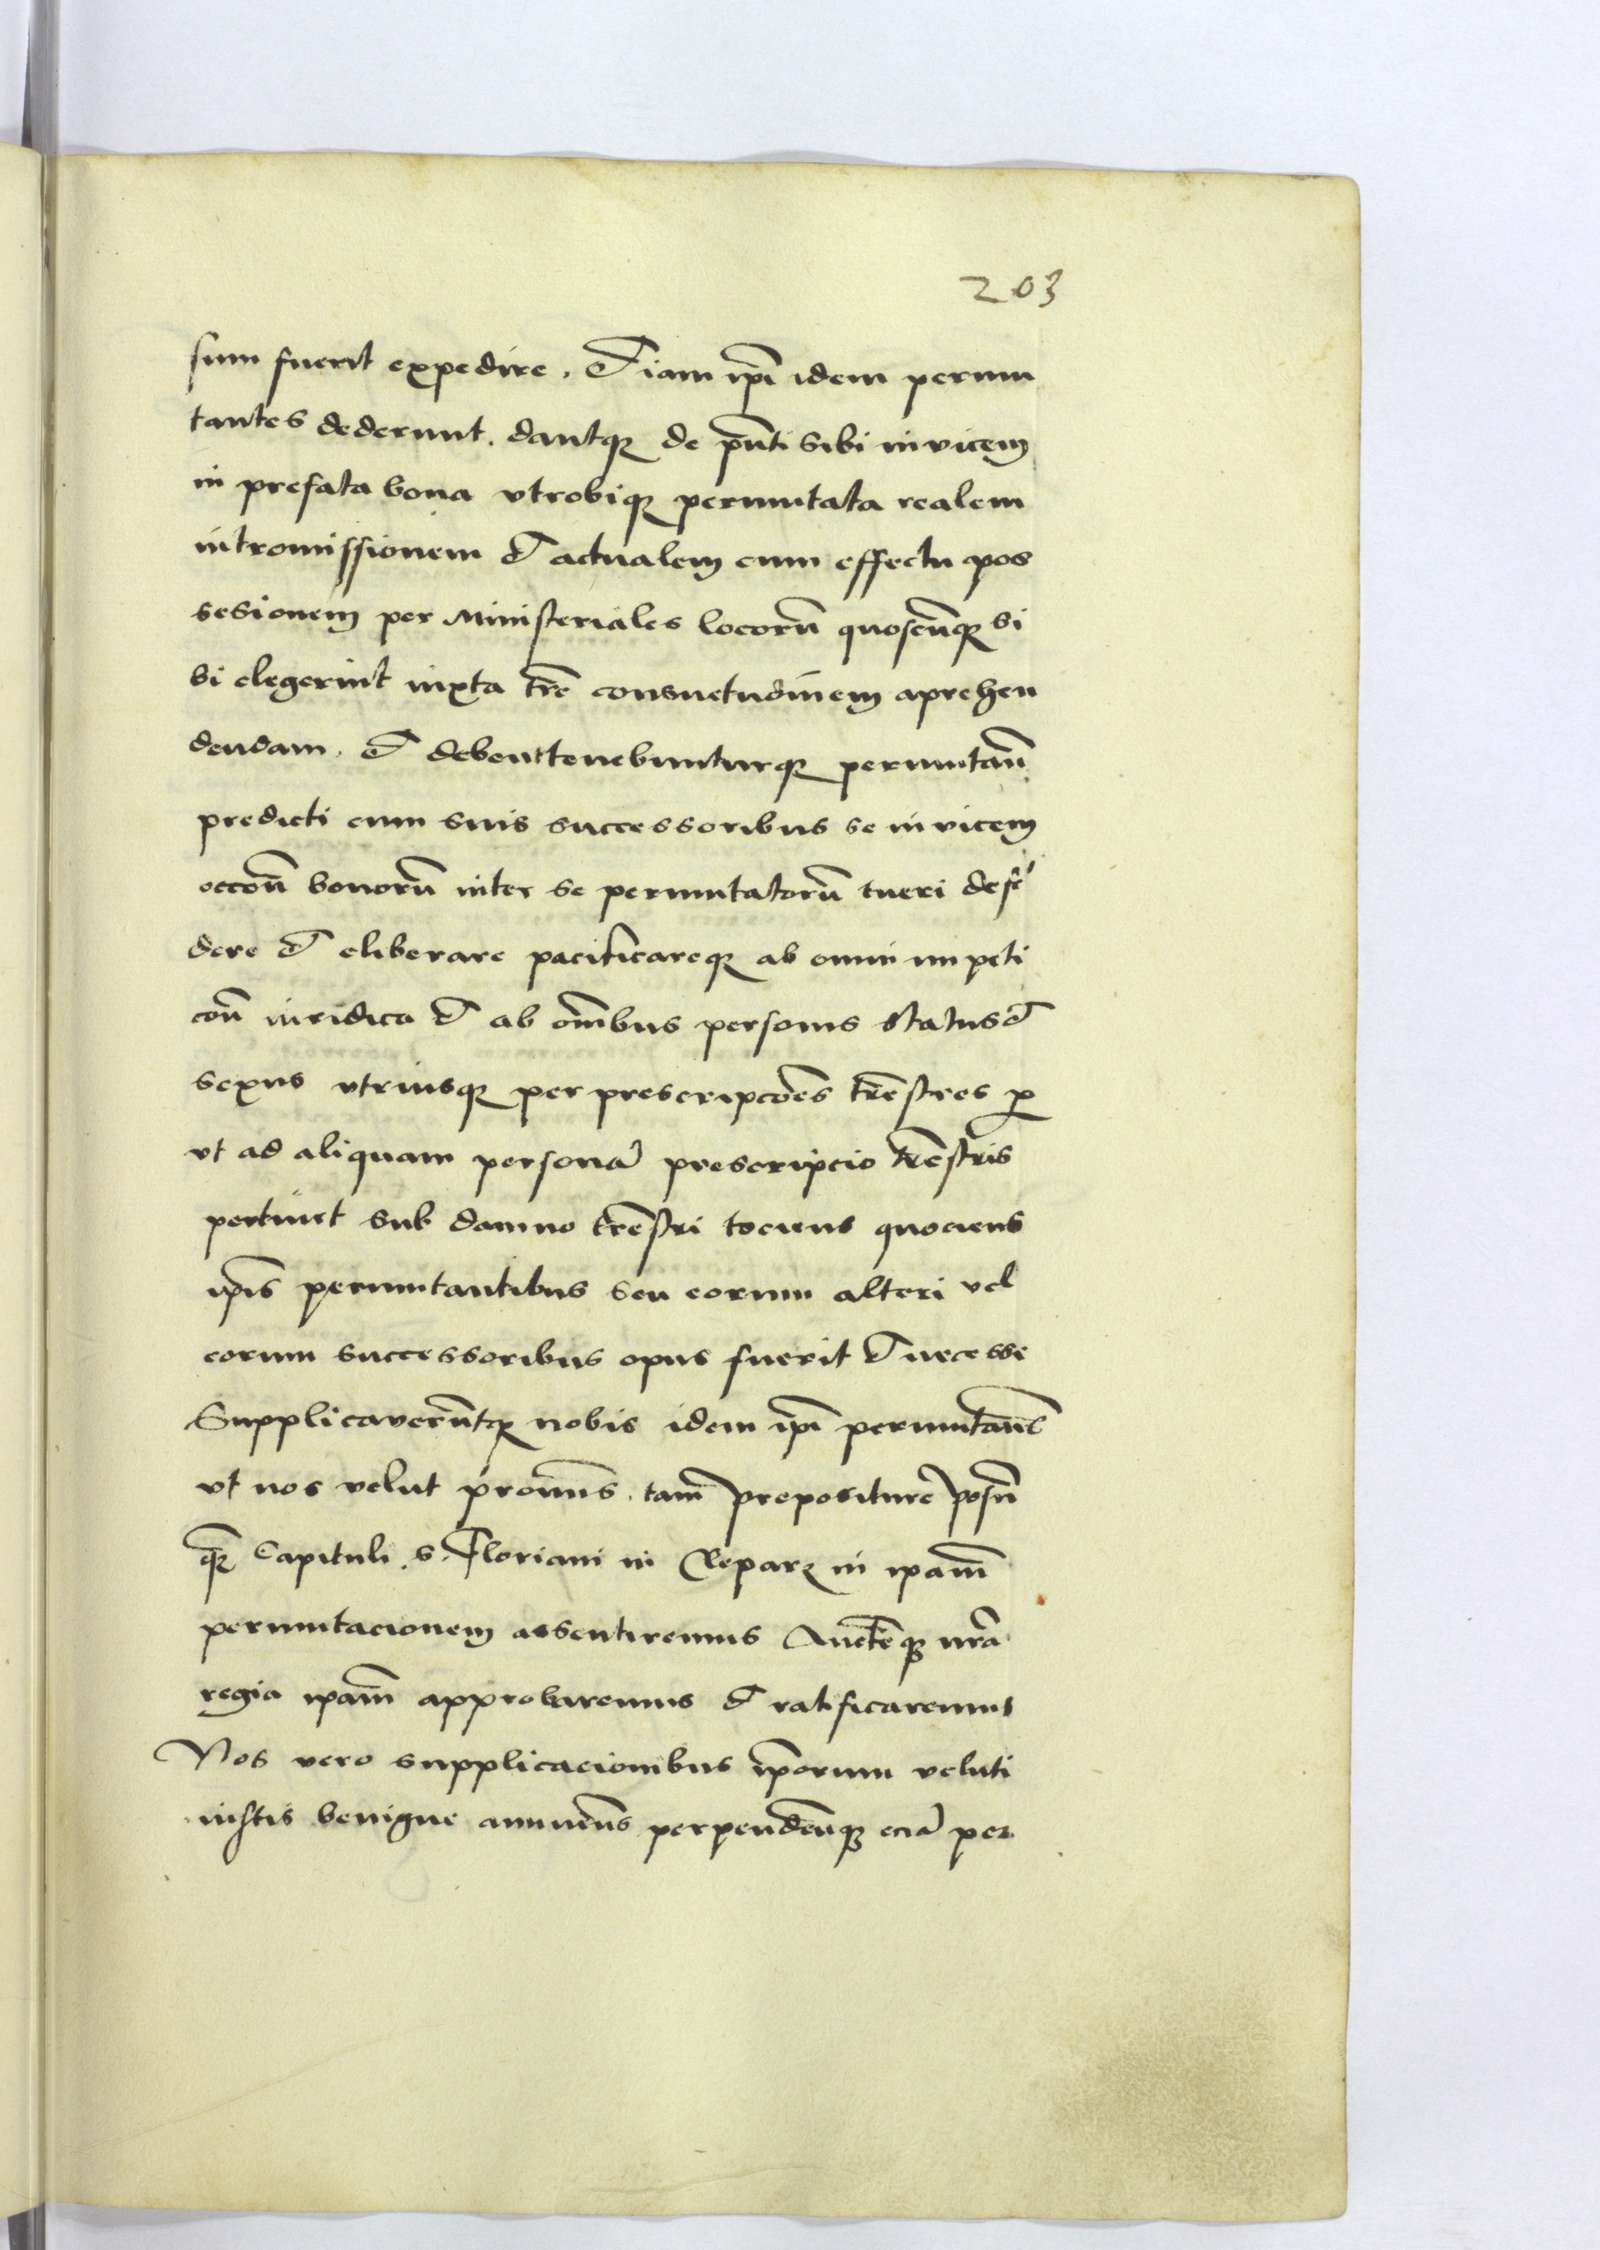 203
sum fuerit expedire. Etiam ip̄i idem permu
tantes dederunt. dantqꝫ de p̄nti sibi invicem
in prefata bona utrobiqꝫ permutata realem
intromissionem et actualem cum effectu pos
sesionem per Ministeriales locorū quoscūqꝫ si
bi elegerint iuxta tr̄e consuetudinem aprehen
dendam. et debent tenebunturqꝫ permutan̄
predicti cum suis successoribus se invicem
occon̄ bonorū inter se permutatorū tueri defē
dere et eliberare pacificareqꝫ ab omni impeti
con̄ iuridica et ab om̄ibus personis status et
sexus utriusqꝫ per prescripcōes tr̄estres ꝓ
ut ad aliquam personā prescripcio tr̄estris
pertinet sub damno tr̄estri tociens quociens
ip̄is permutantibus seu eorum alteri vel
eorum successoribus opus fuerit et necesse
Supplicaverūtqꝫ nobis idem ip̄i permutan̄t
ut nos velut patronus. tam prepositure Posn̄
qꝫ Capituli s. Floriani in Cleparꝫ in ipam̄
permutacionem assentiremus Auctēqꝫ nr̄a
regia ipam̄ approbaremus et ratificaremus
Nos vero supplicacionibus ip̄orum veluti
iustis benigne annuen̄s perpenden̄qꝫ eciā per